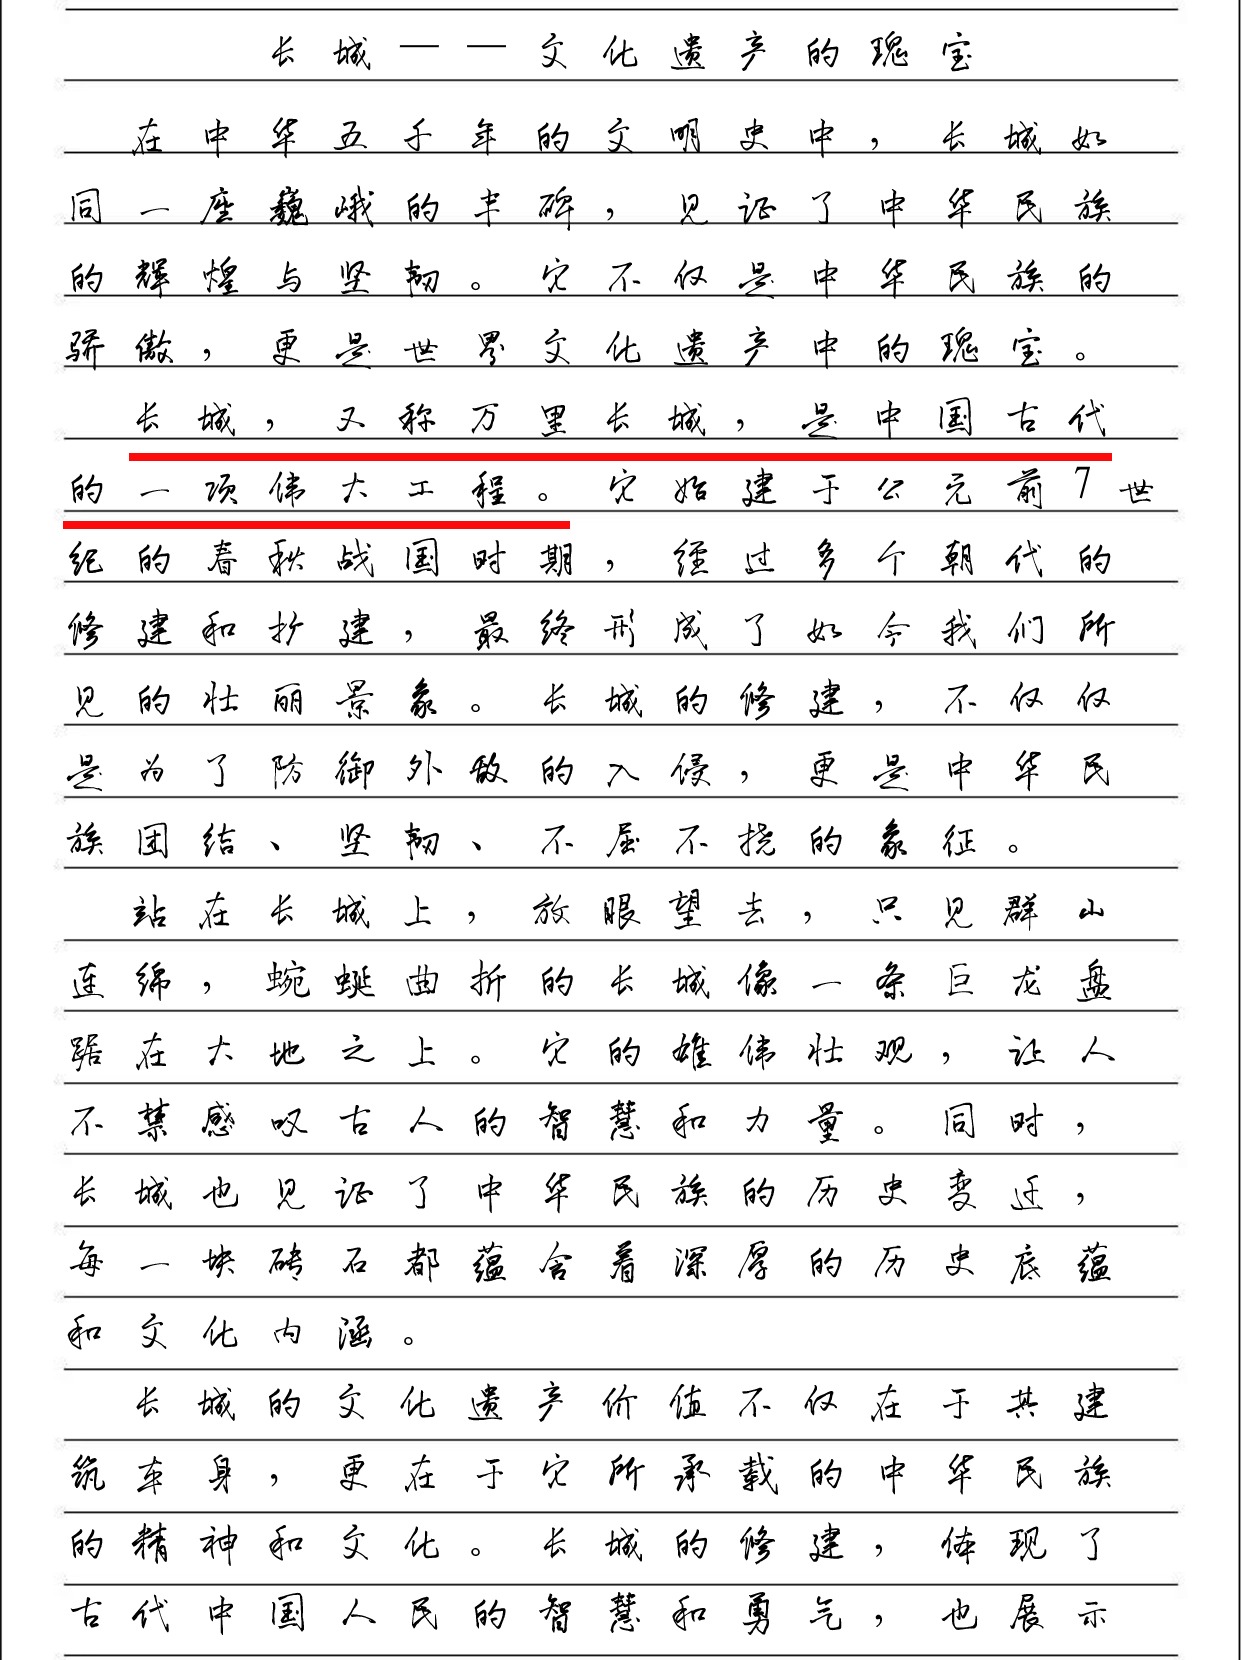 长城——文化遗产的瑰宝
在中华五千年的文明史中，长城如
同一座巍峨的丰碑，见证了中华民族
的辉煌与坚韧。它不仅是中华民族的
骄傲，更是世界文化遗产中的瑰宝。
长城，又称万里长城，是中国古代
的一项伟大工程。它始建于公元前7世
纪的春秋战国时期，经过多个朝代的
修建和扩建，最终形成了如今我们所
见的壮丽景象。长城的修建，不仅仅
是为了防御外敌的入侵，更是中华民
族团结、坚韧、不屈不挠的象征。
站在长城上，放眼望去，只见群山
连绵，蜿蜒曲折的长城像一条巨龙盘
踞在大地之上。它的雄伟壮观，让人
不禁感叹古人的智慧和力量。同时，
长城也见证了中华民族的历史变迁，
每一块砖石都蕴含着深厚的历史底蕴
和文化内涵。
长城的文化遗产价值不仅在于其建
筑本身，更在于它所承载的中华民族
的精神和文化。长城的修建，体现了
古代中国人民的智慧和勇气，也展示